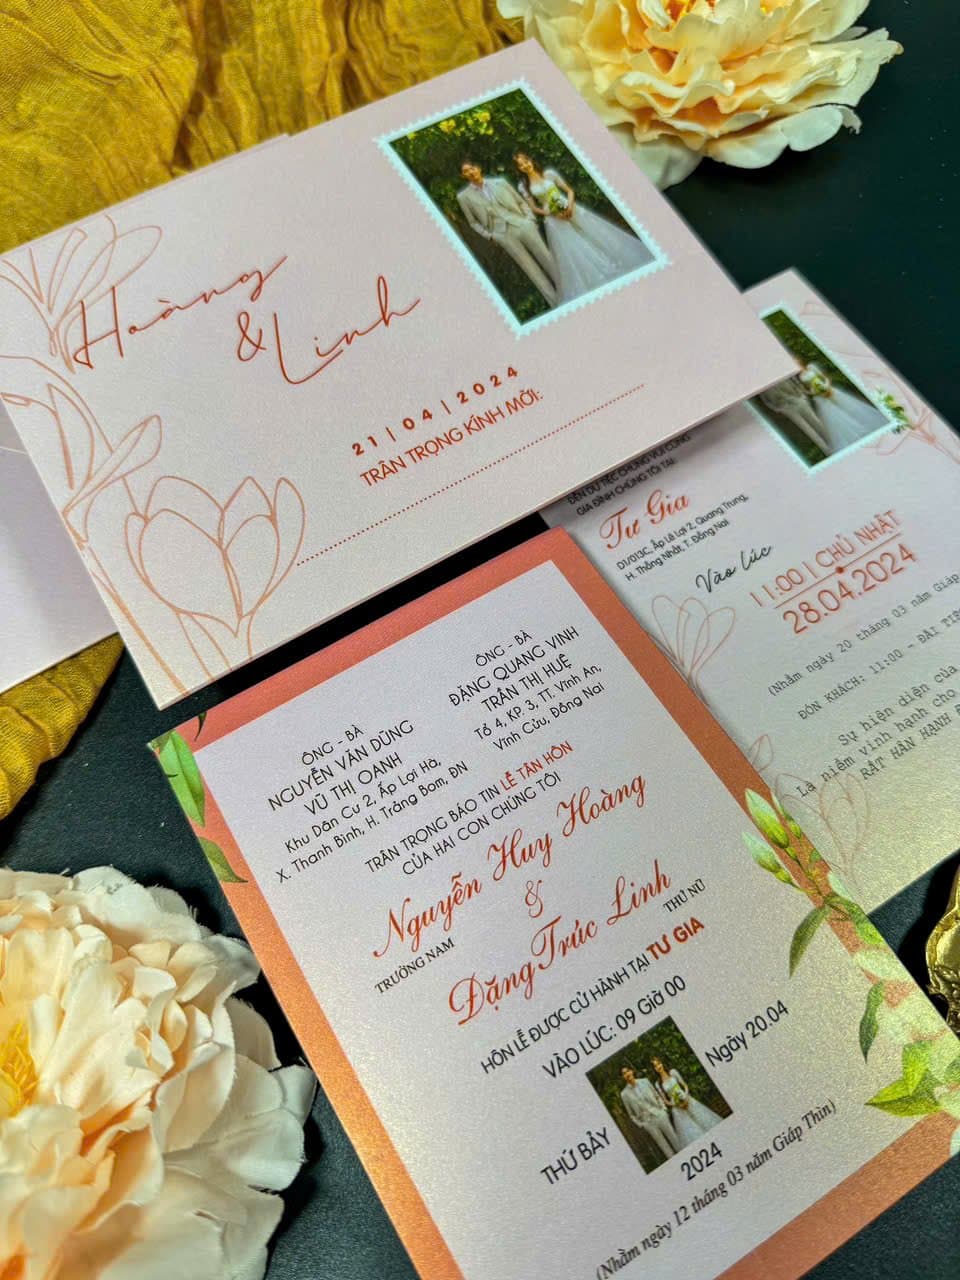 Hoàng
& Linh
21 | 04 | 2024
TRÂN TRỌNG KÍNH MỜI:
ĐẾN DỰ TIỆC CHUNG VUI CÙNG
GIA ĐÌNH CHÚNG TÔI TẠI:
Tư Gia
D1/013C, Ấp Lê Lợi 2, Quang Trung,
H. Thống Nhất, T. Đồng Nai
Vào lúc
11:00 | CHỦ NHẬT
28.04.2024
(Nhằm ngày 20 tháng 03 năm Giáp
ĐÓN KHÁCH: 11:00 - ĐÃI TIỆ
Sự hiện diện của
Là niềm vinh hạnh cho
RẤT HÂN HẠNH Đ
ÔNG - BÀ
NGUYỄN VĂN DŨNG
VŨ THỊ OANH
Khu Dân Cư 2, Ấp Lợi Hà,
X. Thanh Bình, H. Trảng Bom, ĐN
ÔNG - BÀ
ĐẶNG QUANG VINH
TRẦN THỊ HUỆ
Tổ 4, KP. 3, TT. Vĩnh An,
Vĩnh Cửu, Đồng Nai
TRÂN TRỌNG BÁO TIN LỄ TÂN HÔN
CỦA HAI CON CHÚNG TÔI
Nguyễn Huy Hoàng
TRƯỞNG NAM
&
Đặng Trúc Linh
THỨ NỮ
HÔN LỄ ĐƯỢC CỬ HÀNH TẠI TƯ GIA
VÀO LÚC: 09 Giờ 00
THỨ BẢY
Ngày 20.04
2024
(Nhằm ngày 12 tháng 03 năm Giáp Thìn)